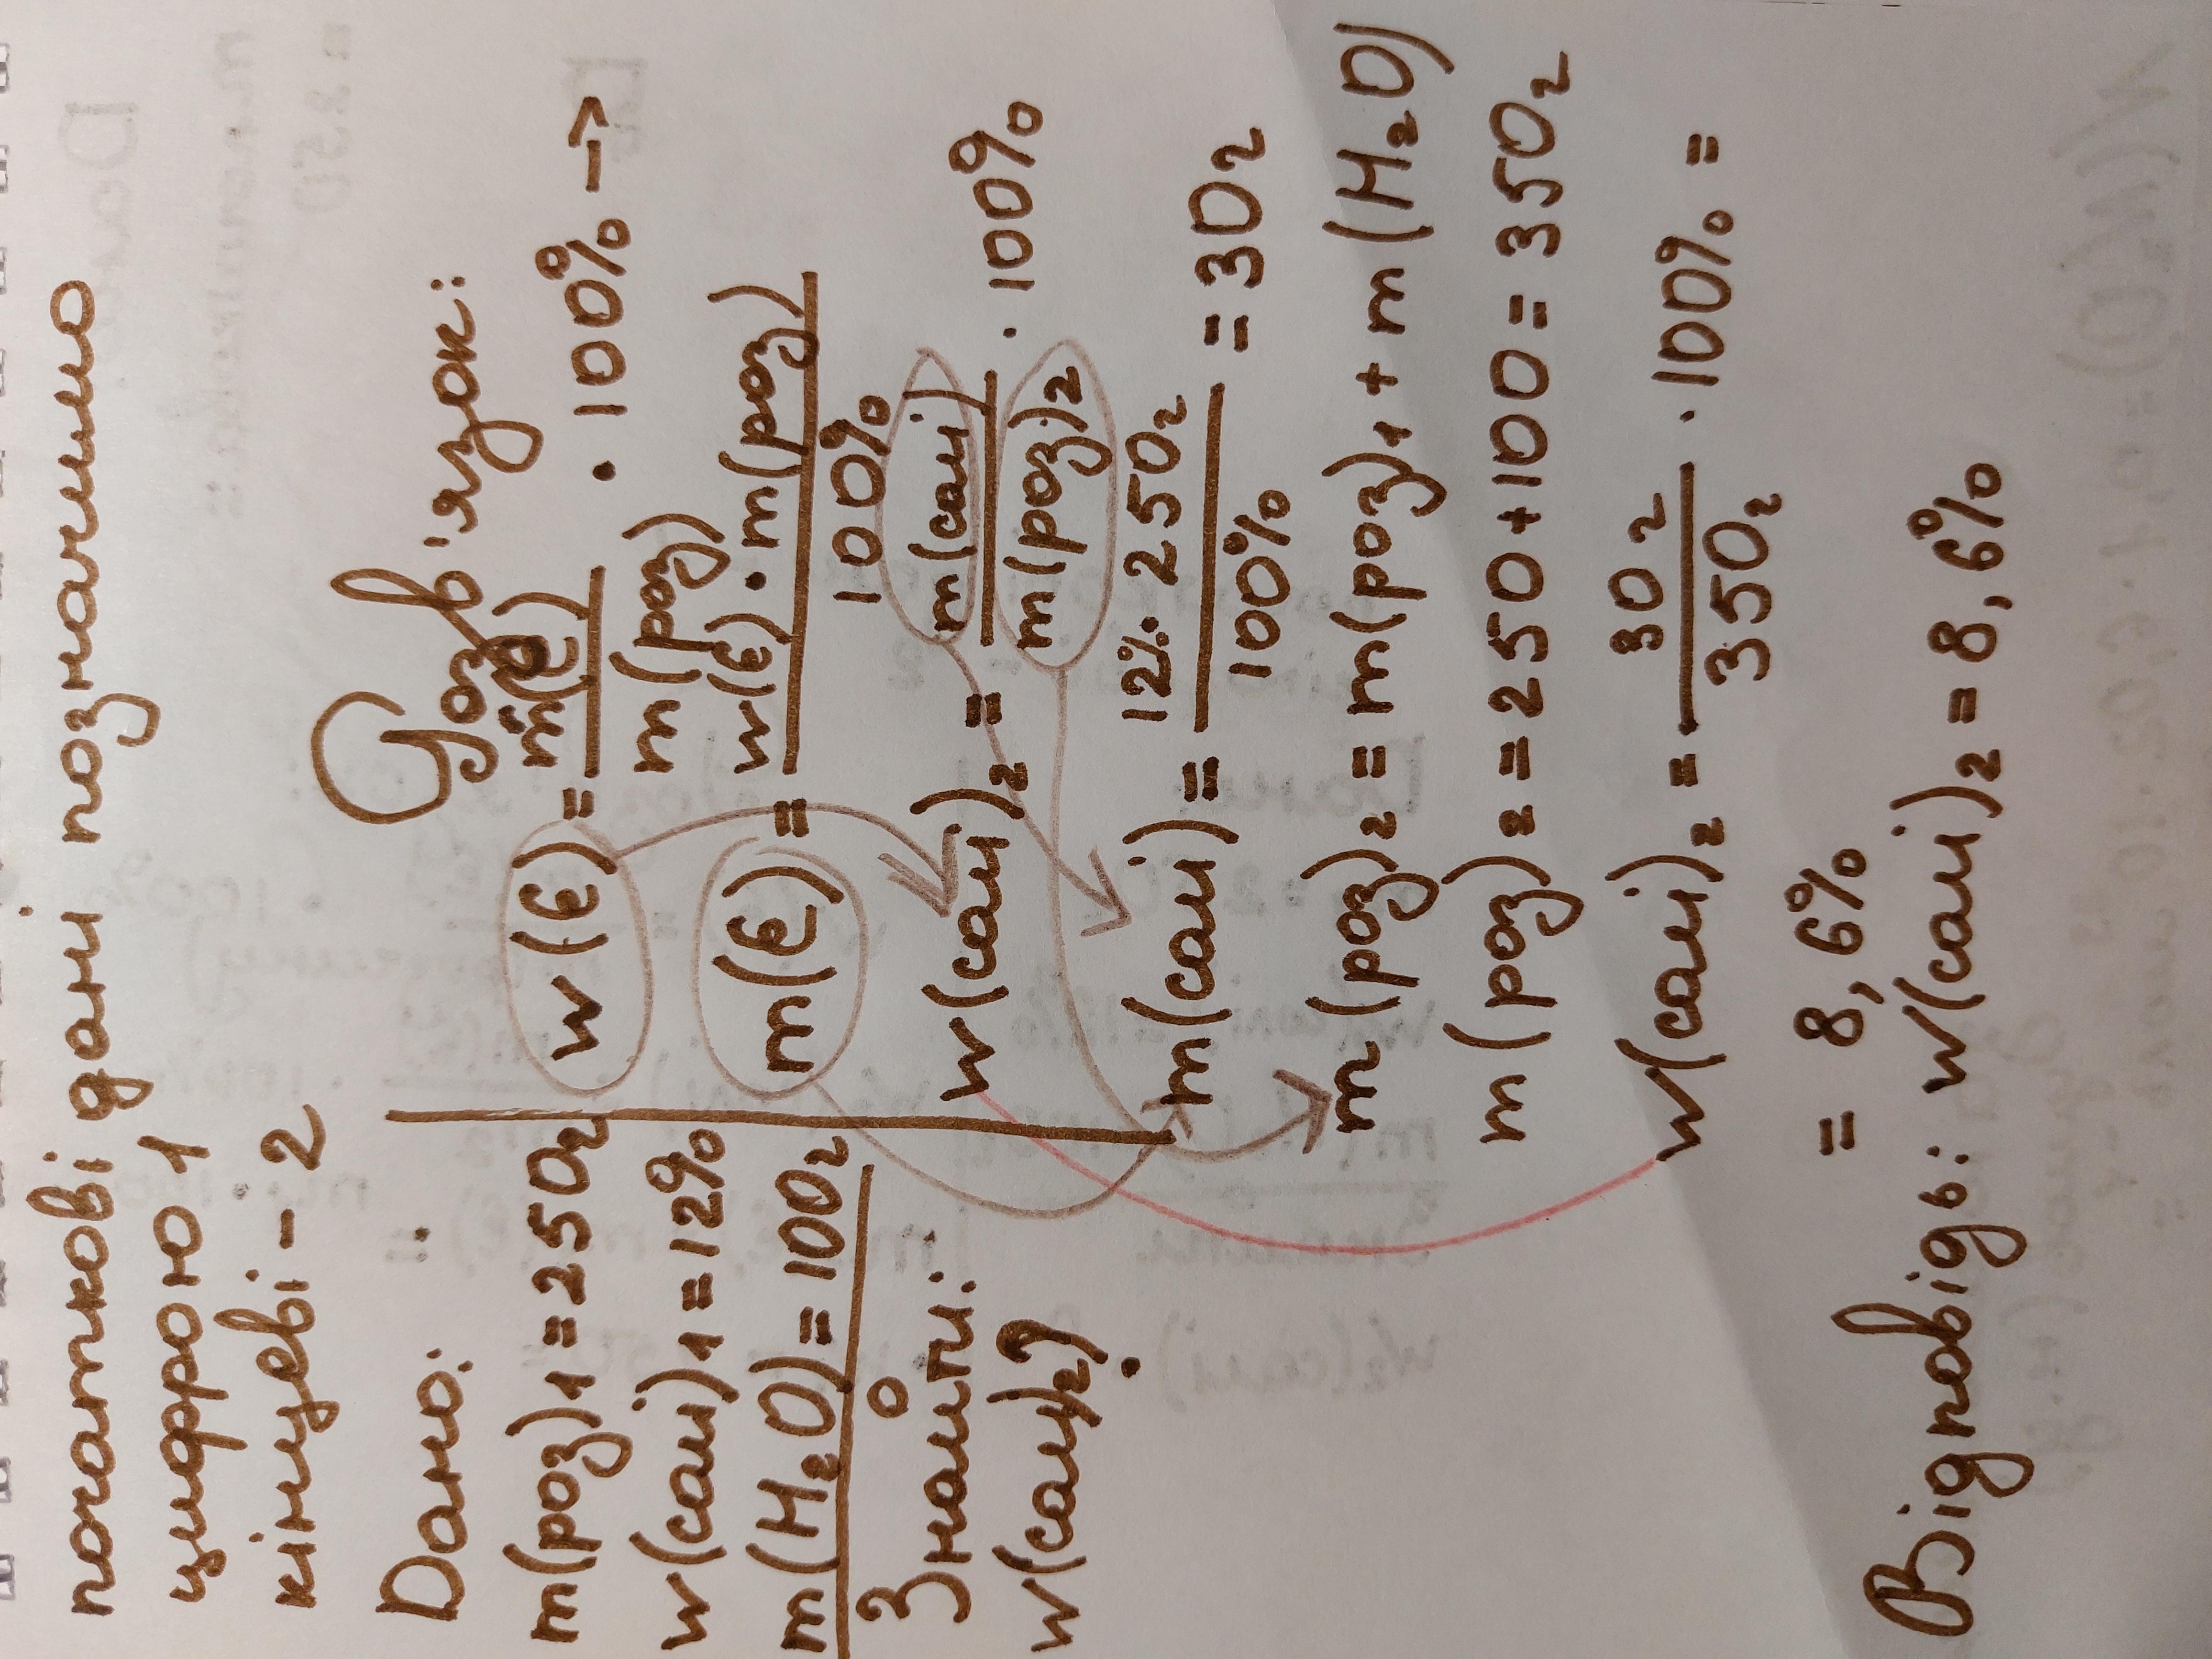 початкові дані позначимо
цифрою 1
кінцеві - 2
Дано:
m(роз)1 = 250г
w(солі)1 = 12%
m(H2O) = 100г
Знайти:
w(солі)2?
Розв'язок:
w(Е) = m(Е) / m(роз) · 100% →
m(Е) = w(Е) · m(роз) / 100%
w(солі)2 = m(солі) / m(роз)2 · 100%
m(солі) = 12% · 250г / 100% = 30г
m(роз)2 = m(роз)1 + m(H2O)
m(роз)2 = 250+100 = 350г
w(солі)2 = 30г / 350г · 100% =
= 8,6%
Відповідь: w(солі)2 = 8,6%